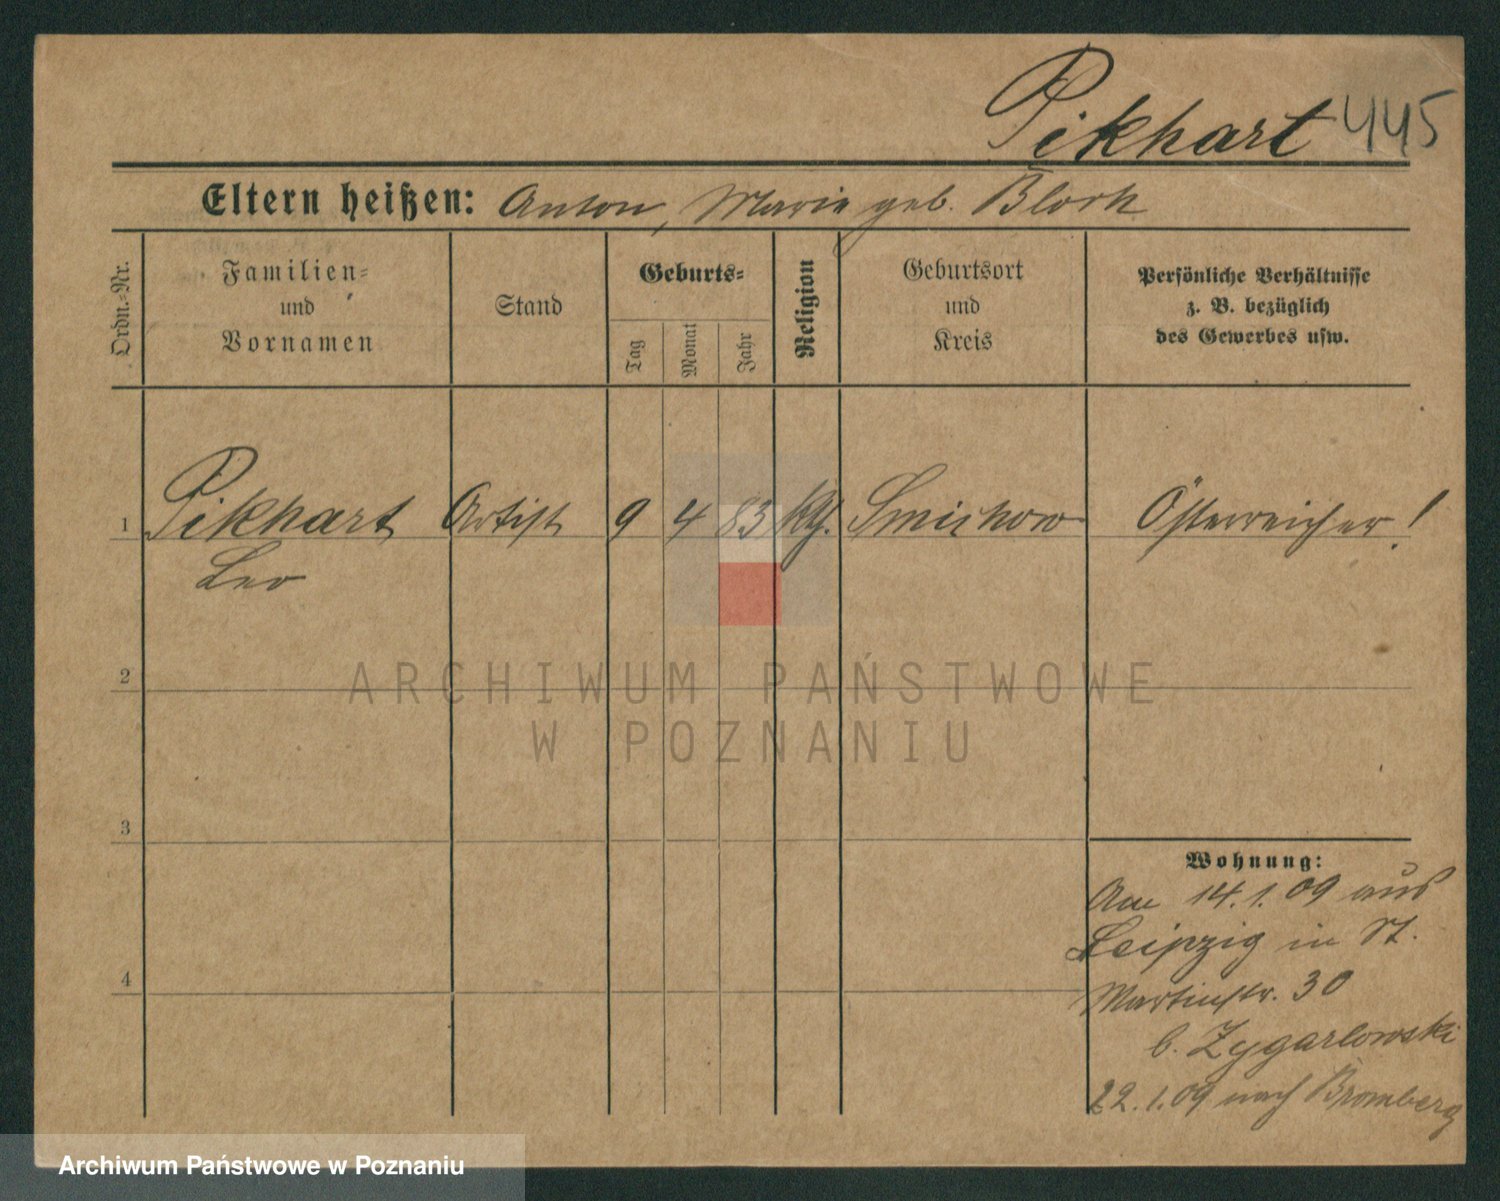 Pikhart 445
Eltern heißen: Anton, Marie geb. Bloch
Ordn.-Nr.
Familien-
und
Vornamen
Stand
Geburts-
Tag
Monat
Jahr
Religion
Geburtsort
und
Kreis
Persönliche Verhältnisse
z. B. bezüglich
des Gewerbes usw.
1 Pikhart Artist 9 4 83 kth. Smichow Österreicher!
Leo
2
ARCHIWUM PAŃSTWOWE
W POZNANIU
3
Wohnung:
Am 14.1.09 aus
Leipzig in St.
4
Martinstr. 30
b. Zygarlowski
22.1.09 nach Bromberg
Archiwum Państwowe w Poznaniu